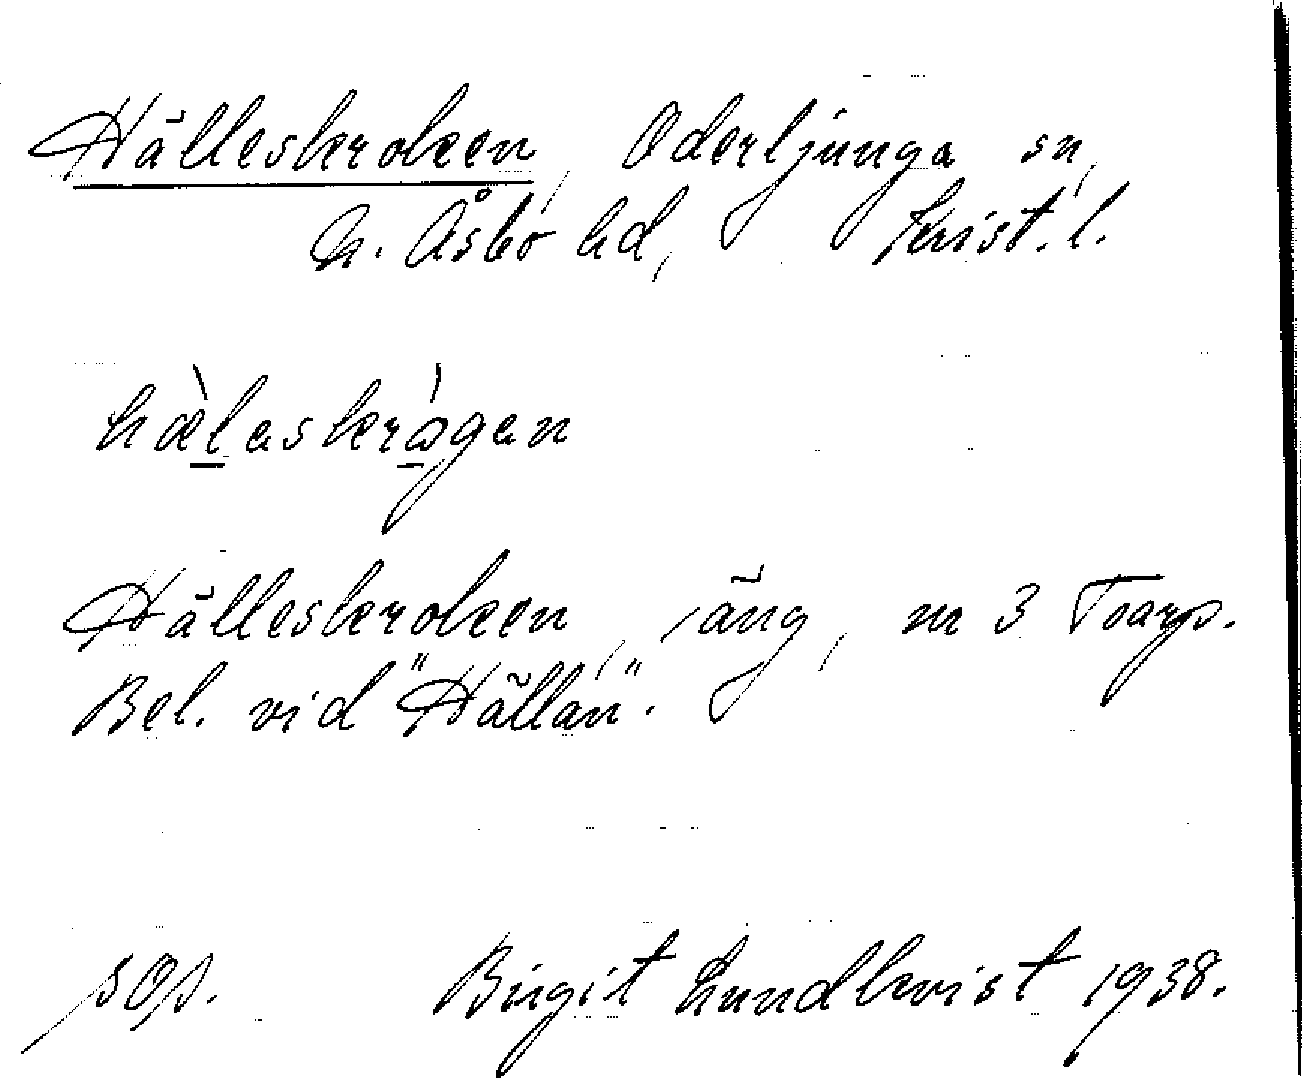 Hälleskroken, Oderljunga sn,
N. Åsbo hd, Krist. l.
hælaskrågan
Hälleskroken, äng, nr 3 Toarp.
Bel. vid "Hällan".
sOs. Birgit Lundkvist 1938.